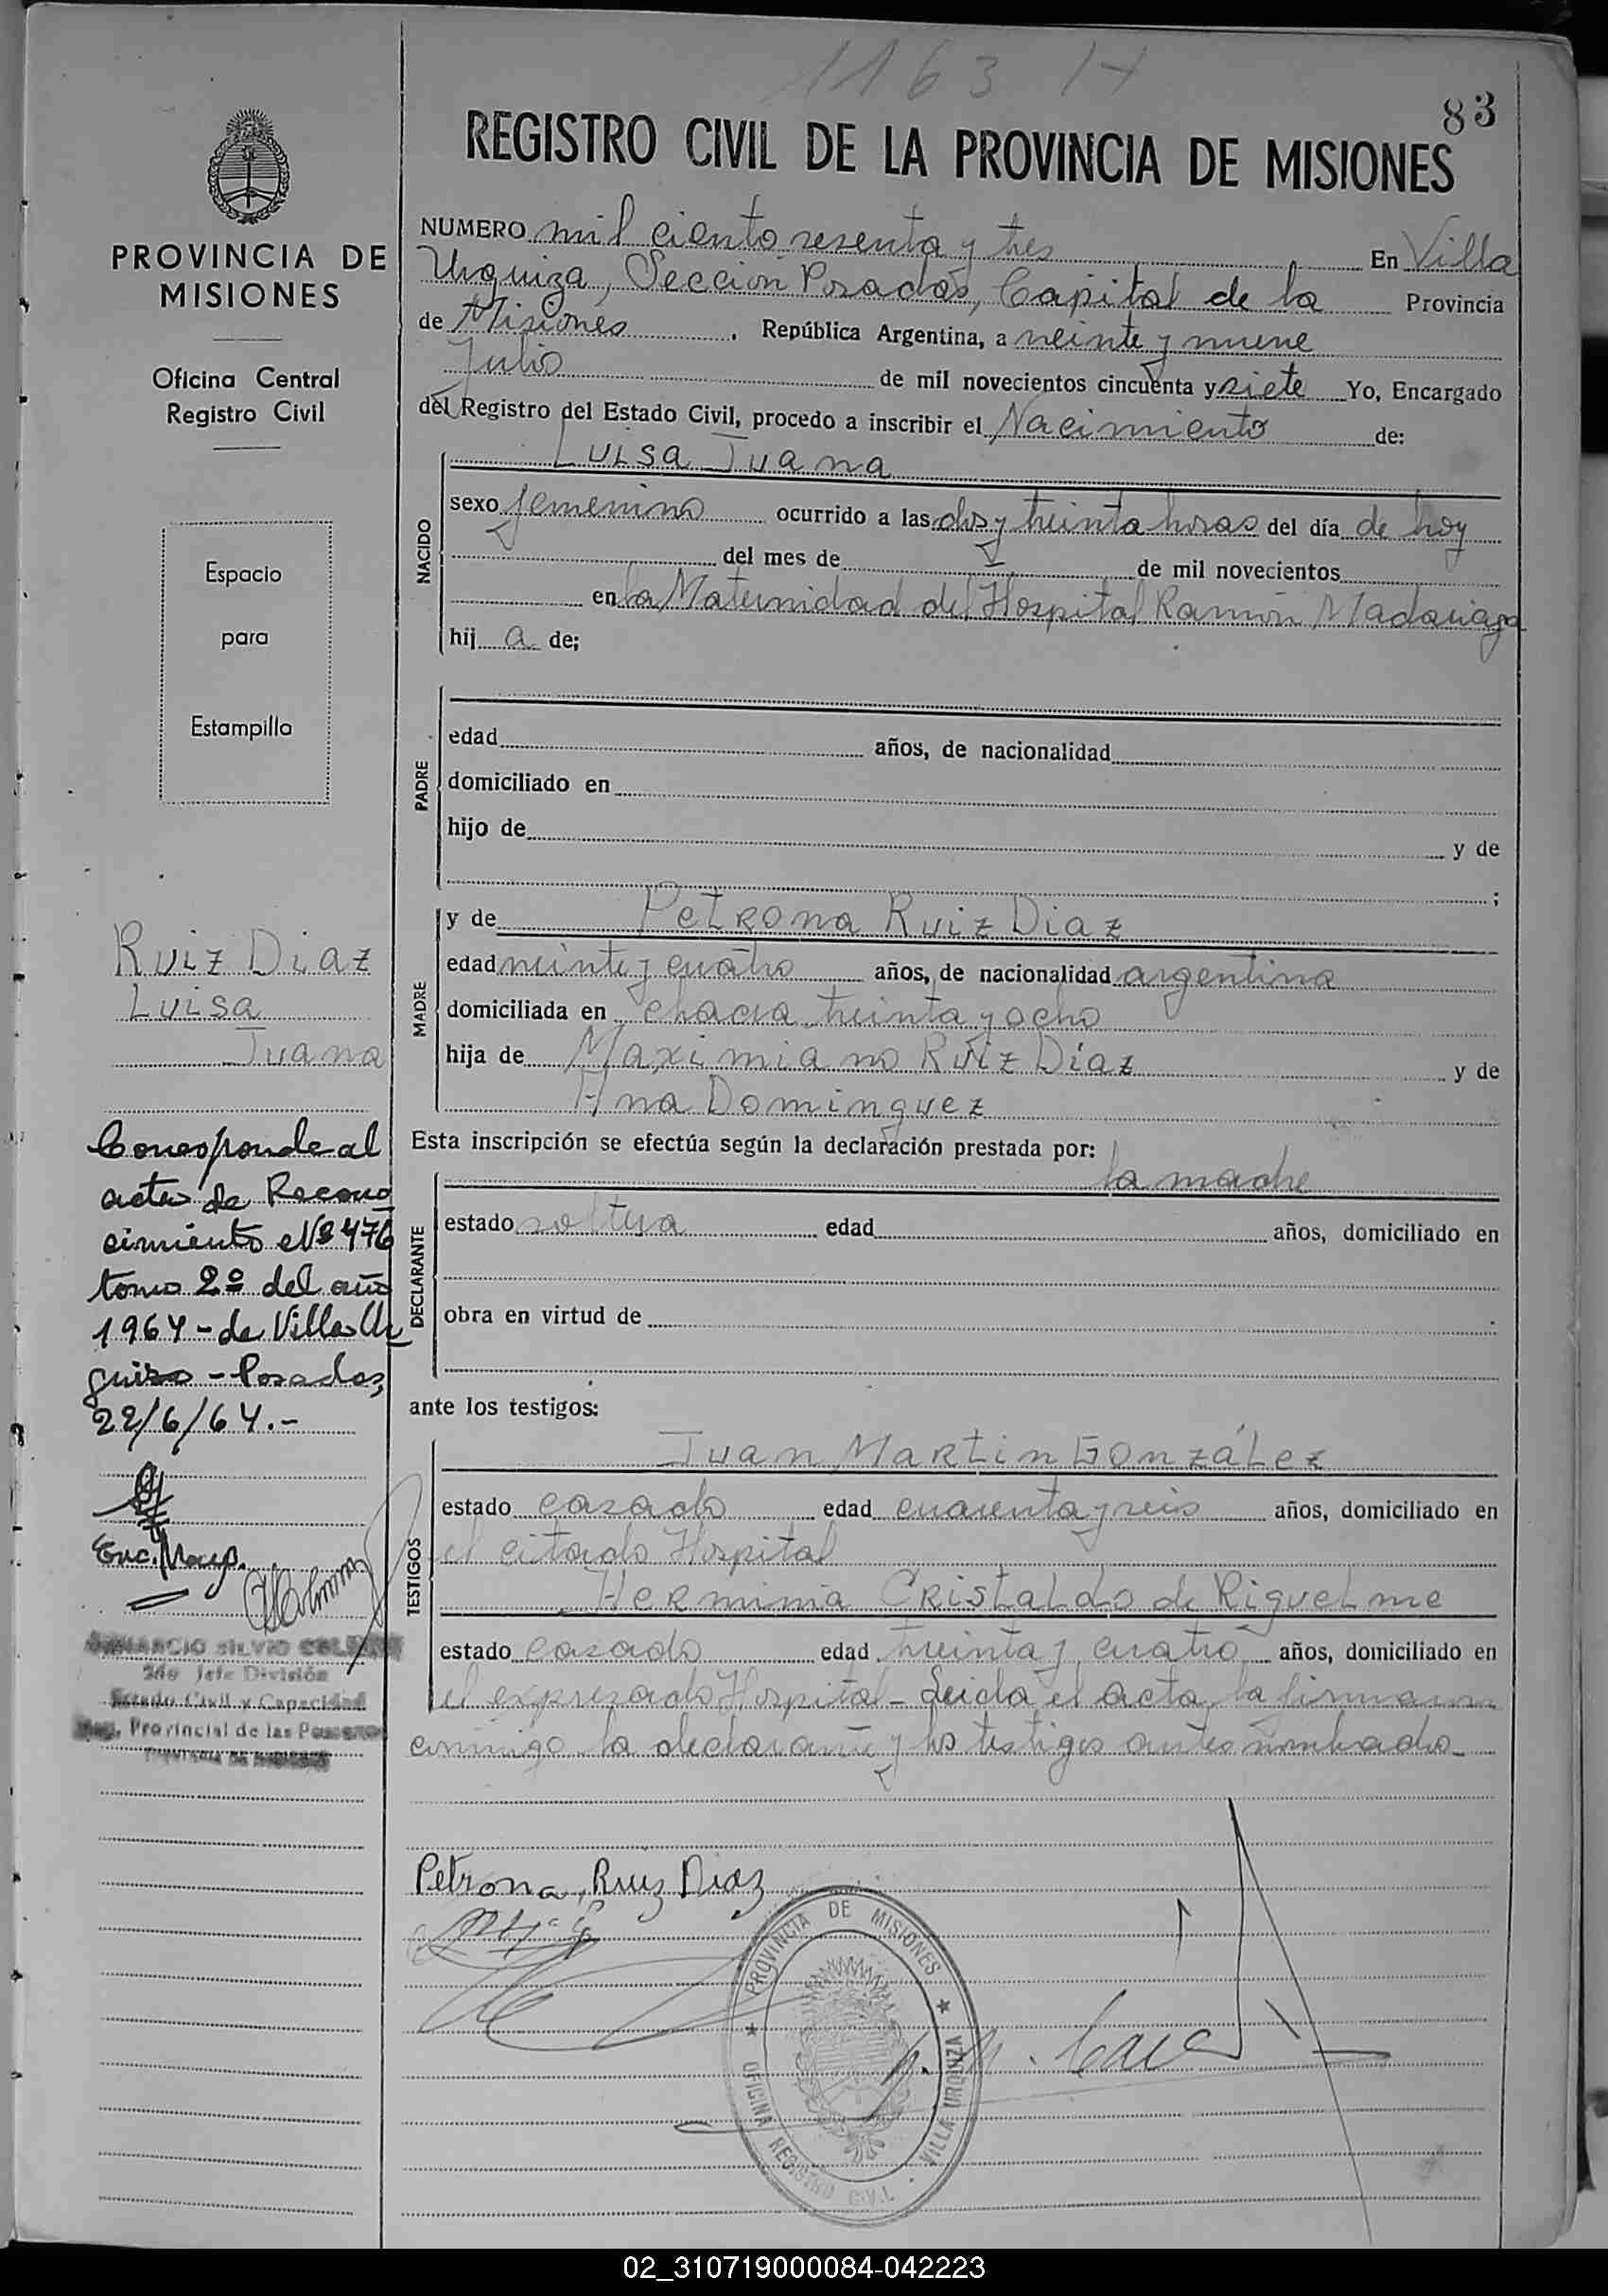 1163 H
83
REGISTRO CIVIL DE LA PROVINCIA DE MISIONES
PROVINCIA DE
MISIONES
Oficina Central
Registro Civil
Espacio
para
Estampilla
NUMERO mil ciento sesenta y tres En Villa
Urquiza, Sección Posadas, Capital de la Provincia
de Misiones, República Argentina, a veinte y nueve
Julio de mil novecientos cincuenta y siete Yo, Encargado
del Registro del Estado Civil, procedo a inscribir el Nacimiento de:
NACIDO
Luisa Juana
sexo femenino ocurrido a las dos y treinta horas del día de hoy
del mes de de mil novecientos
en la Maternidad del Hospital Ramón Madariaga
hij a de;
PADRE
edad años, de nacionalidad
domiciliado en
hijo de y de
;
MADRE
y de Petrona Ruiz Diaz
edad veinte y cuatro años, de nacionalidad argentina
domiciliada en chacra treinta y ocho
hija de Maximiano Ruiz Díaz y de
Ana Dominguez
Ruiz Diaz
Luisa
Juana
Corresponde al
acta de Recono
cimiento Nº 476
tomo 2º del año
1964 - de Villa Ur
quiza - Posadas,
22/6/64.-
Enc. Mayp.
2do Jefe División
Estado Civil y Capacidad
Reg. Provincial de las Personas
PROVINCIA DE MISIONES
Esta inscripción se efectúa según la declaración prestada por:
DECLARANTE
la madre
estado soltera edad años, domiciliado en
obra en virtud de
ante los testigos:
TESTIGOS
Juan Martin González
estado casado edad cuarenta y seis años, domiciliado en
el citado Hospital
Herminia Cristaldo de Riquelme
estado casado edad treinta y cuatro años, domiciliado en
el expresado Hospital - Leida el acta, la firman
conmigo la declarante y los testigos antes nombrados
Petrona, Ruiz Diaz
PROVINCIA DE MISIONES
OFICINA REGISTRO CIVIL
VILLA URQUIZA
02_310719000084-042223